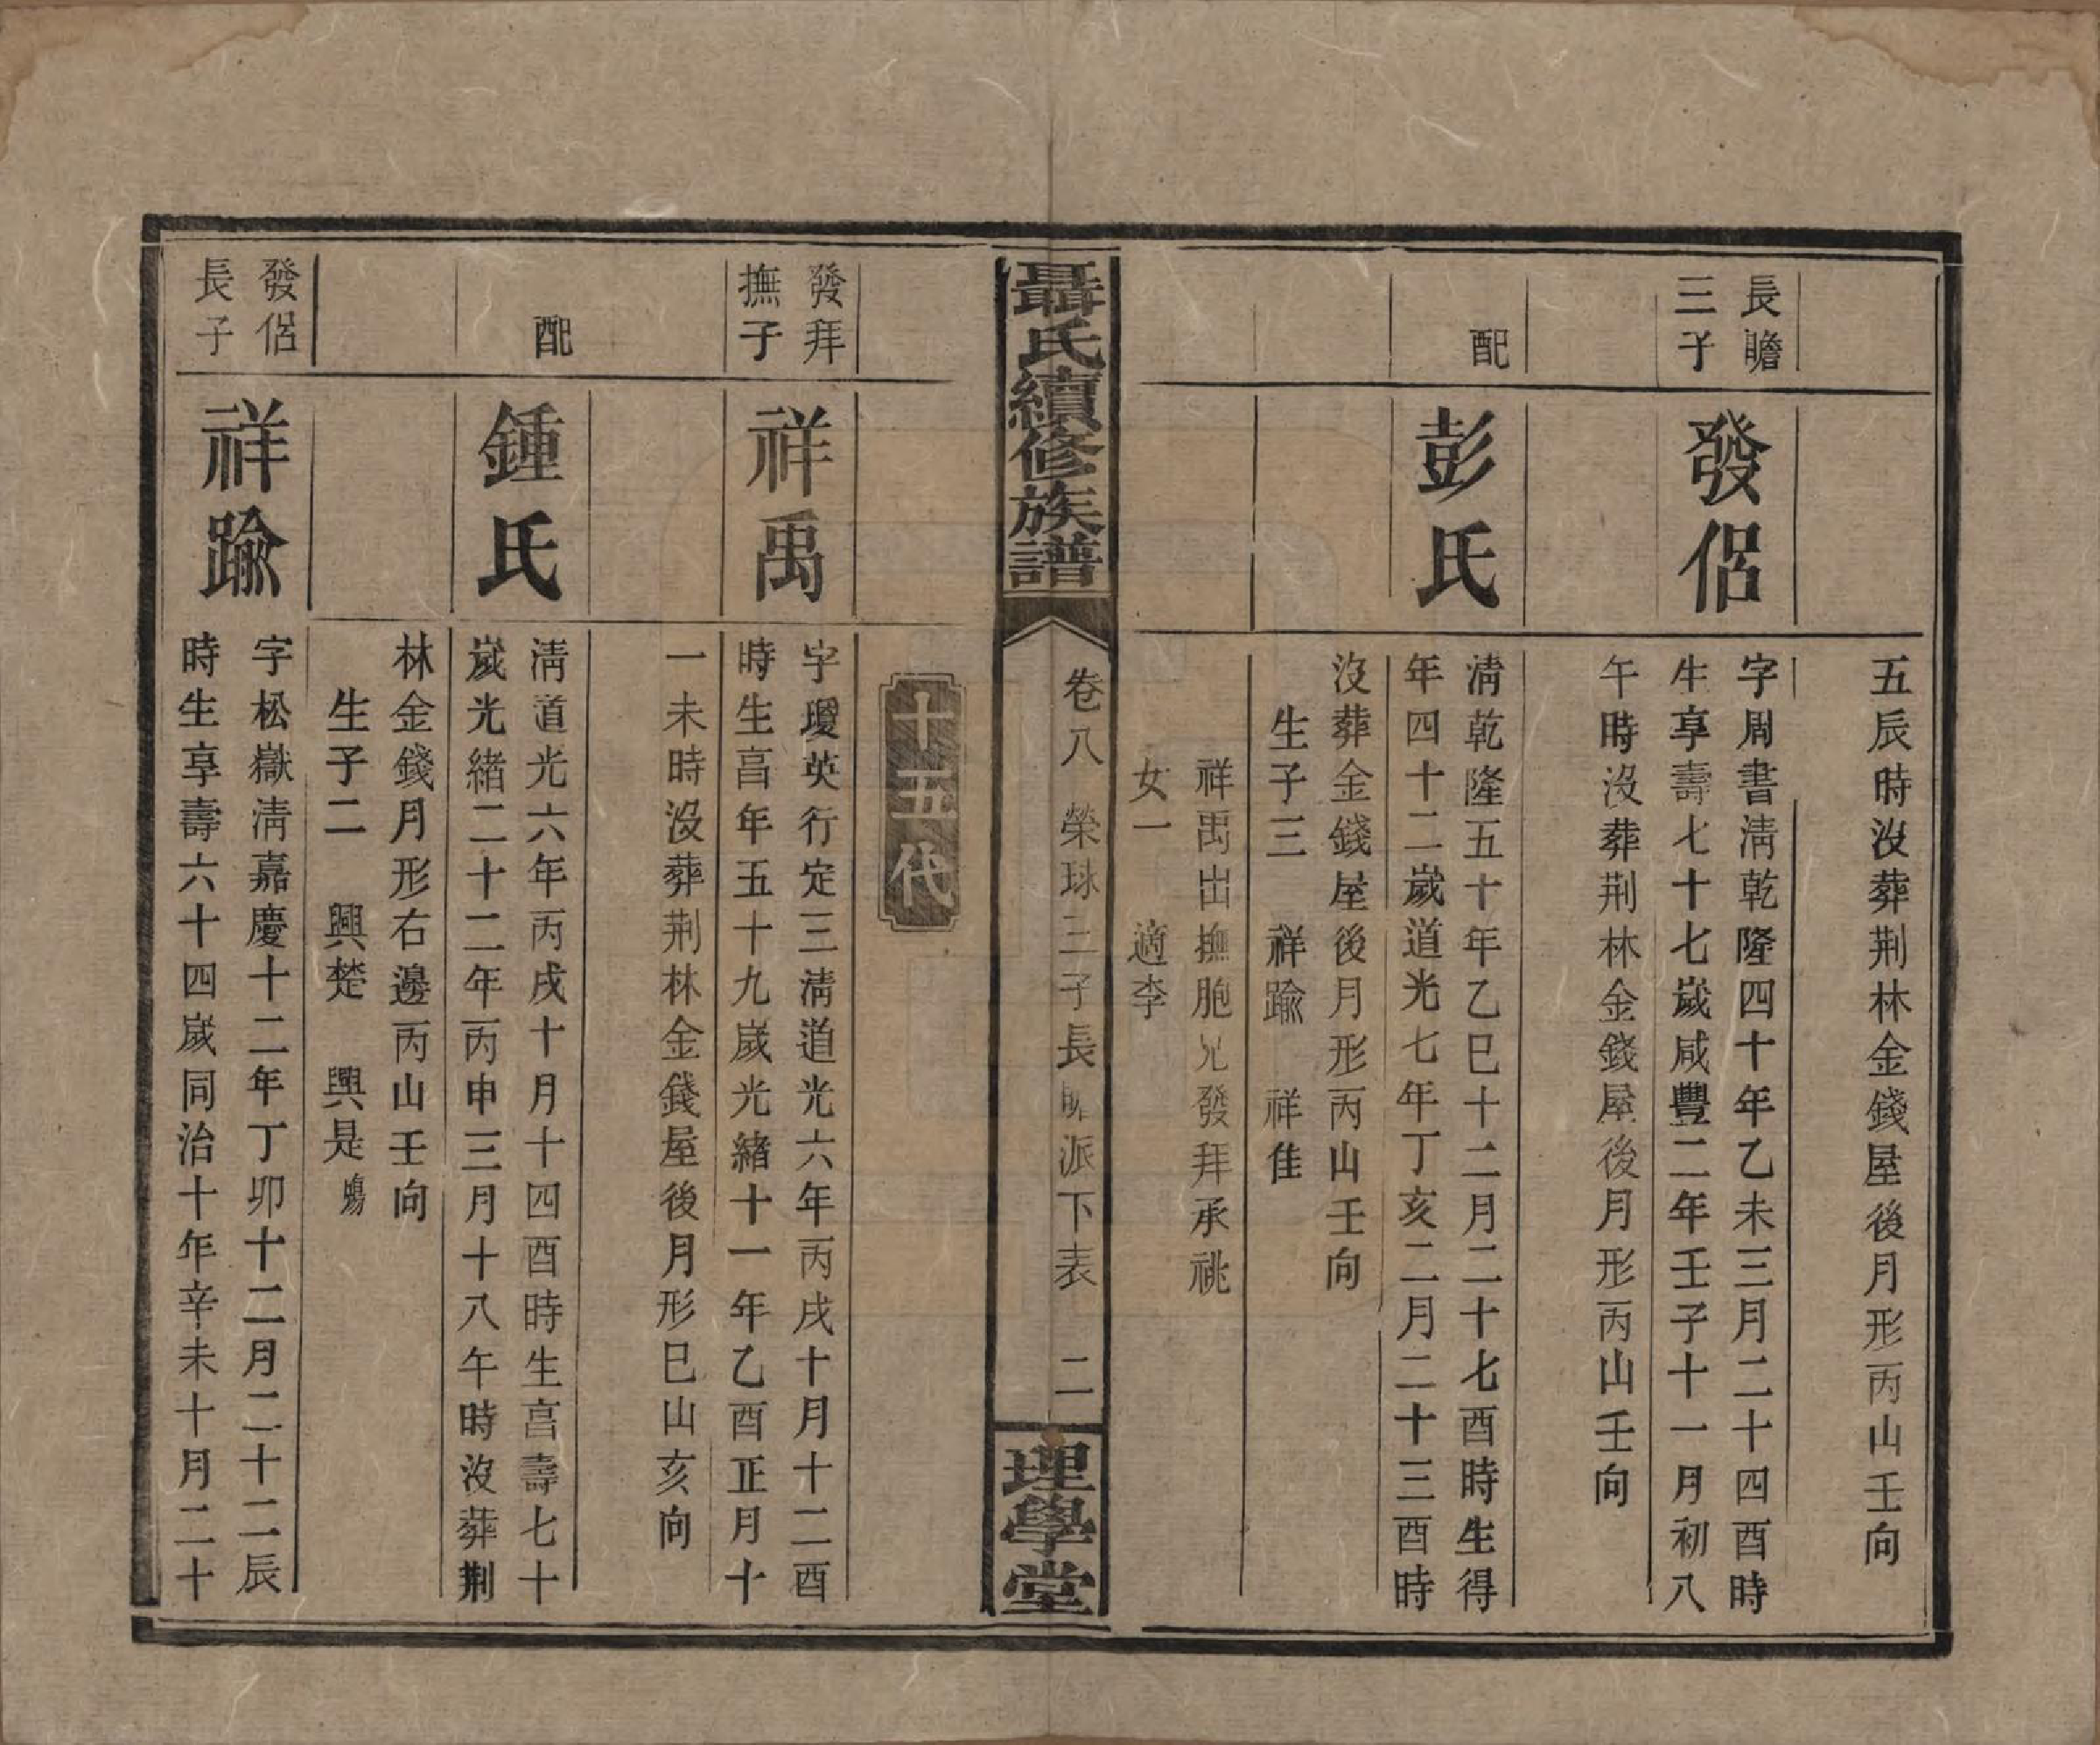 五辰時沒葬荆林金錢屋後月形丙山壬向
長瞻
三子
發侶
字周書淸乾隆四十年乙未三月二十四酉時
生享壽七十七歲咸豐二年壬子十一月初八
午時沒葬荆林金錢屋後月形丙山壬向
配
彭氏
淸乾隆五十年乙巳十二月二十七酉時生得
年四十二歲道光七年丁亥二月二十三酉時
沒葬金錢屋後月形丙山壬向
生子三 祥踰 祥佳
祥禹出撫胞兄發拜承祧
女一 適李
聶氏續修族譜
卷八 榮球三子長瞻派下表 二
理學堂
十五代
發拜
撫子
祥禹
字瓊英行定三淸道光六年丙戌十月十二酉
時生亯年五十九歲光緒十一年乙酉正月十
一未時沒葬荆林金錢屋後月形巳山亥向
配
鍾氏
淸道光六年丙戌十月十四酉時生亯壽七十
歲光緒二十二年丙申三月十八午時沒葬荆
林金錢月形右邊丙山壬向
生子二 興楚 興是殤
發侶
長子
祥踰
字松嶽淸嘉慶十二年丁卯十二月二十二辰
時生享壽六十四歲同治十年辛未十月二十